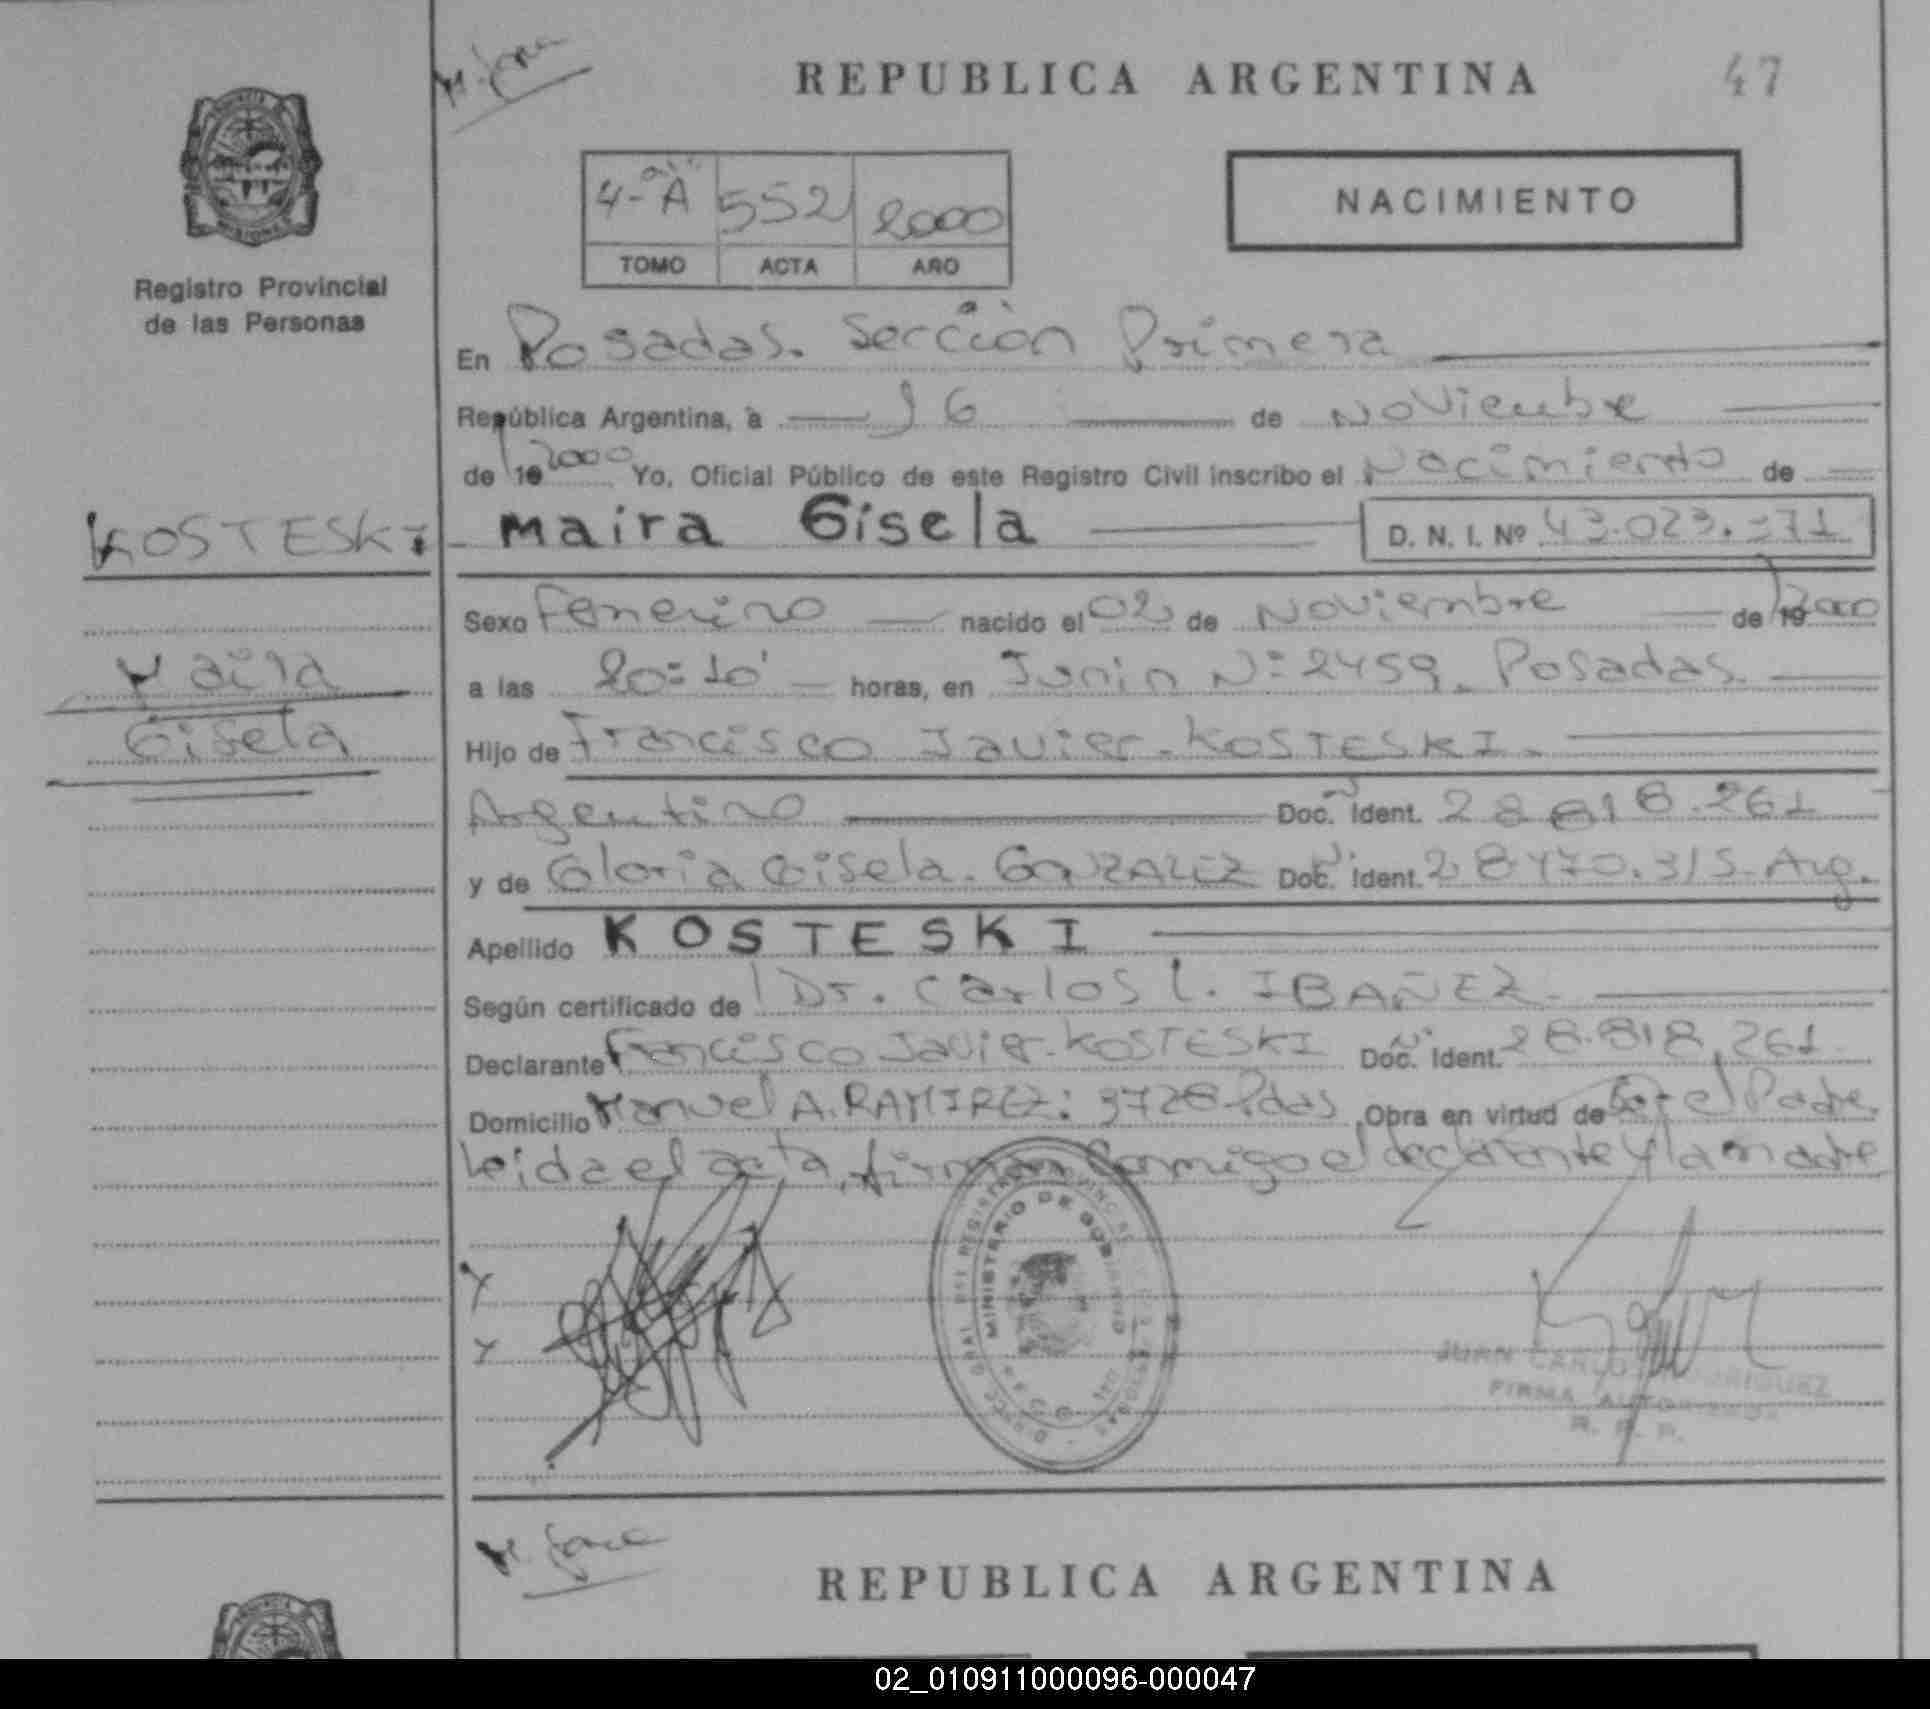 REPUBLICA ARGENTINA
47
4-"A" 552 2000
TOMO ACTA AÑO
NACIMIENTO
Registro Provincial
de las Personas
En Posadas. Sección Primera
República Argentina, a 16 de Noviembre
de 19 2000 Yo, Oficial Público de este Registro Civil inscribo el Nacimiento de
KOSTESKI
Maira Gisela
D. N. I. Nº 43.023.271
Sexo Femenino nacido el 02 de Noviembre de 19 2000
Maira
a las 20:10' horas, en Junin N: 2459. Posadas.
Gisela
Hijo de Francisco Javier. KOSTESKI.
Argentino Doc. Ident. 28.818.261
y de Gloria Gisela. GONZALEZ Doc. Ident. 28.470.315. Arg.
Apellido KOSTESKI
Según certificado de Dr. Carlos L. IBAÑEZ.
Declarante Francisco Javier. KOSTESKI Doc. Ident. 28.818.261
Domicilio Manuel A. RAMIREZ: 3728 Pdas Obra en virtud de Ser el Padre.
Leida el acta, firman conmigo el declarante y la madre
MINISTERIO DE GOBIERNO
JUAN CARLOS RODRIGUEZ
FIRMA AUTORIZADA
R. P. P.
REPUBLICA ARGENTINA
02_010911000096-000047